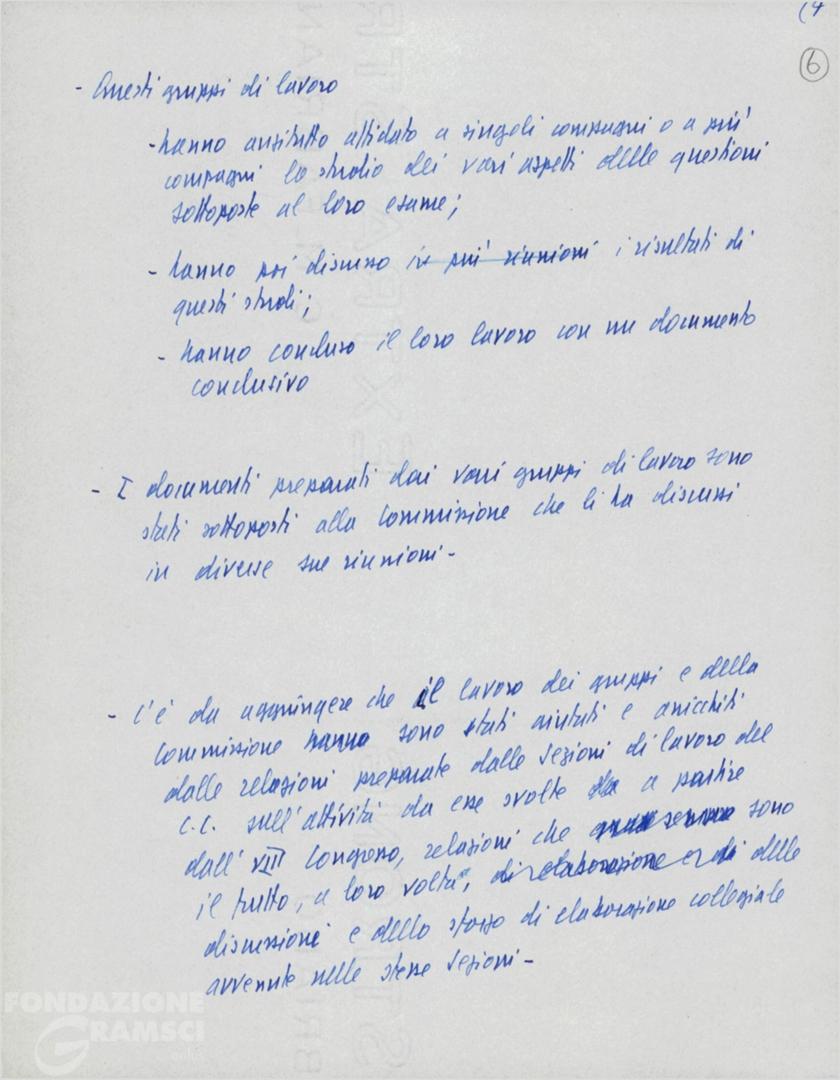 (4
6
- Questi gruppi di lavoro
- hanno anzitutto affidato a singoli compagni o a più
compagni lo studio dei vari aspetti delle questioni
sottoposte al loro esame;
- hanno poi discusso in più riunioni i risultati di
questi studi;
- hanno concluso il loro lavoro con un documento
conclusivo
- I documenti preparati dai vari gruppi di lavoro sono
stati sottoposti alla Commissione che li ha discussi
in diverse sue riunioni -
- C'è da aggiungere che il lavoro dei gruppi e della
Commissione hanno sono stati aiutati e arricchiti
dalle relazioni preparate dalle Sezioni di lavoro del
C.C. sull'attività da esse svolte a partire
dall'VIII Congresso, relazioni che sono
il frutto, a loro volta, di elaborazione e di delle
discussioni e dello sforzo di elaborazione collegiale
avvenute nelle stesse Sezioni -
FONDAZIONE
GRAMSCI